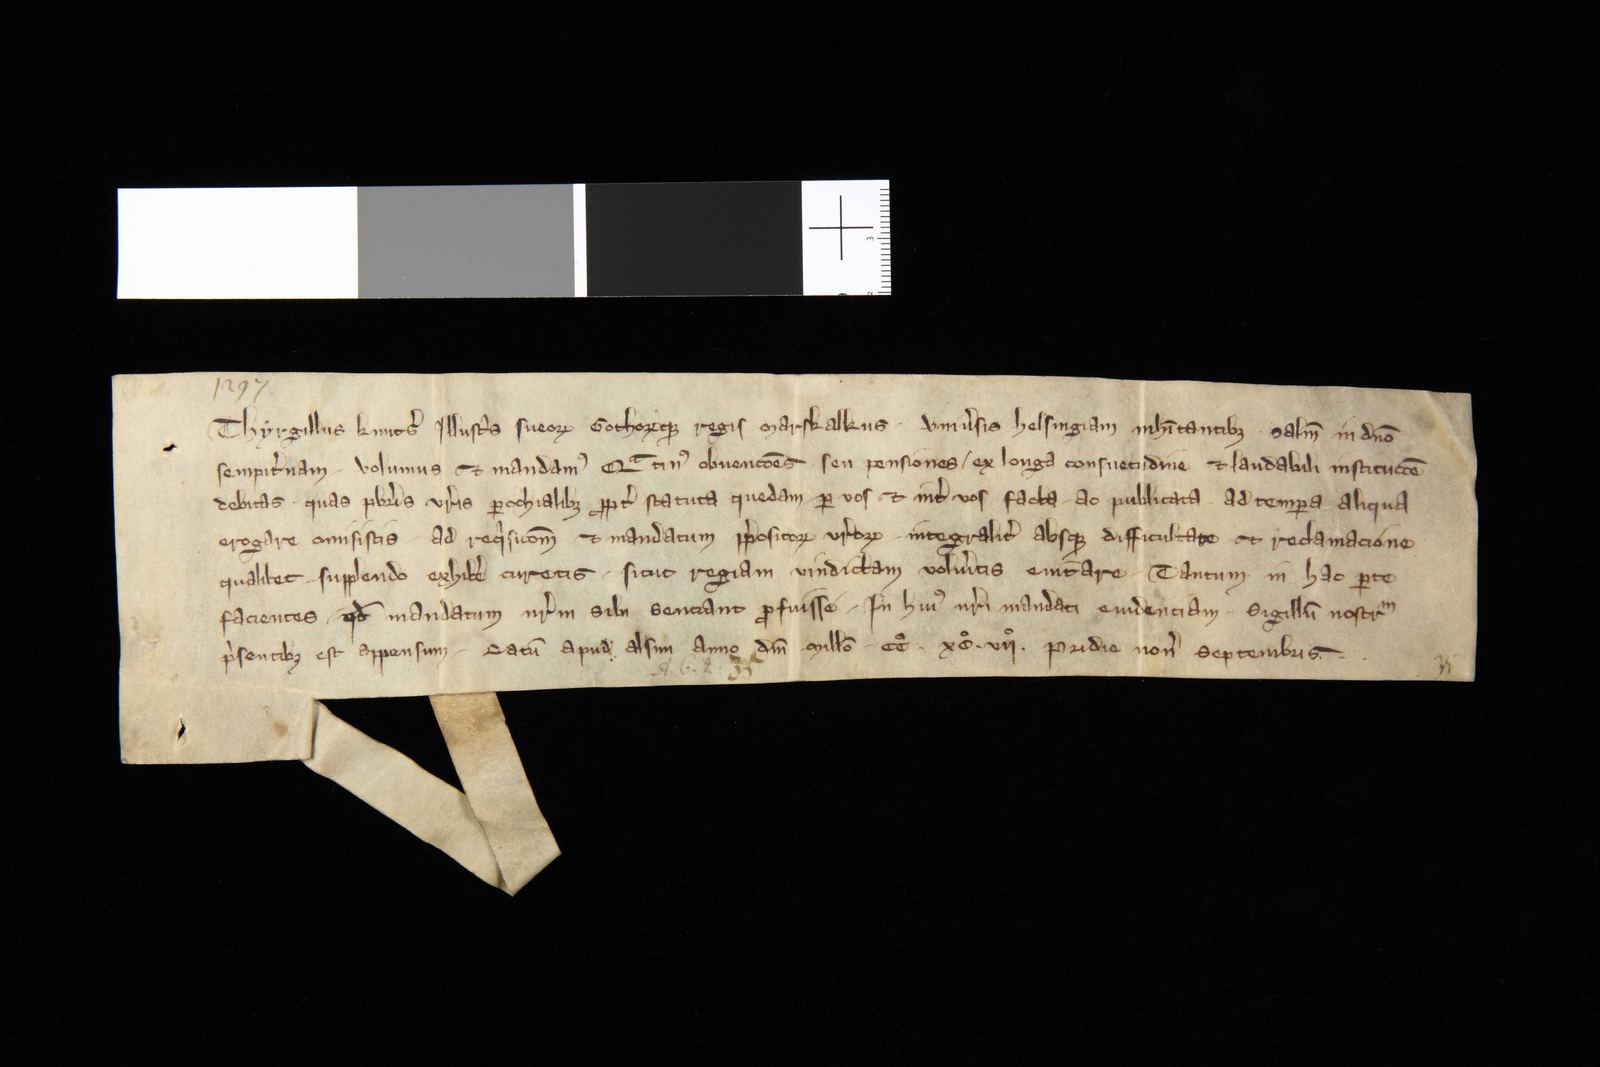 1297.
Thyrgillus knutsꝰ Illustris sueorꝝ Gothorꝝqꝫ regis Marskalkus . Vniuʼsis helsingiam inhītantibꝫ . salm̄ in dn̄o
sempitʼnam . Volumus et mandamꝰ Qͣtinꝰ obuencōes seu pensiones / ex longa consuetudine et laudabili institucōe
debitas . quas pb̄ris vr̄is ꝑochialibꝫ ꝓptʼ statuta quedam ꝑ vos et intʼ vos facta . ac publicata . ad tempora aliqua
erogare omisistis . ad reqͥsicōem et mandatum p̄positorꝝ vr̄orꝝ . integralitʼ absqꝫ difficultate et reclamacione
qualibet . supplendo exhibʼe curetis . sicut regiam vindictam volūitis euitare . Tantum in hac ꝑte
facientes / qd̄ mandatum nr̄m sibi senciant ꝓfuisse . In huiꝰ nr̄i mandati euidenciam . Sigillū nostrͫ
p̄sentibꝫ est appensum . Datū apud alsnu Anno dn̄i Millo . CCo . XCo . VIIo . Pridie non̄ Septembris .
35